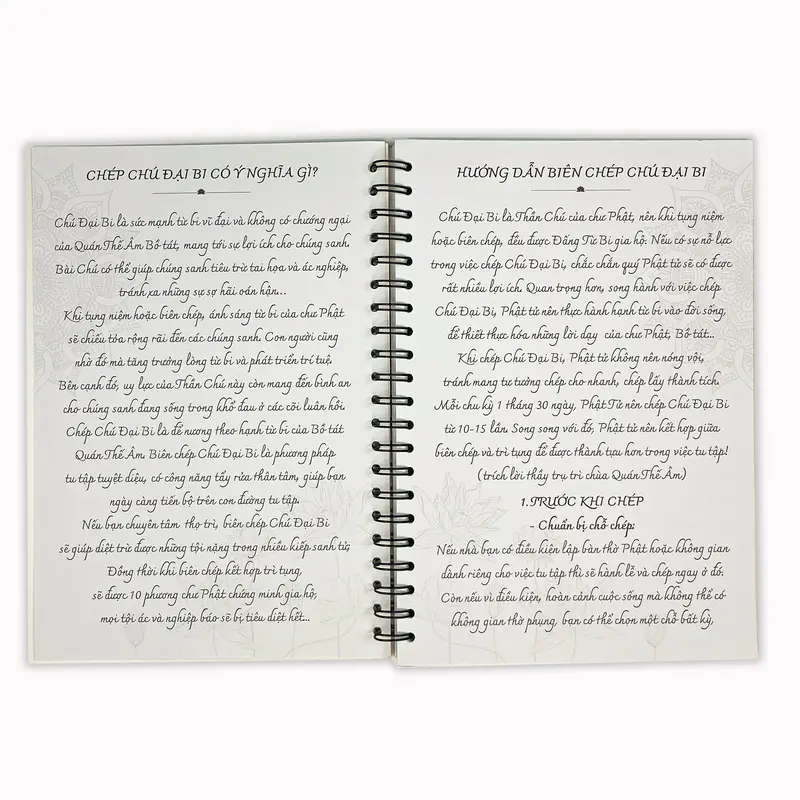 CHÉP CHÚ ĐẠI BI CÓ Ý NGHĨA GÌ?
Chú Đại Bi là sức mạnh từ bi vĩ đại và không có chướng ngại
của Quán Thế Âm Bồ tát, mang tới sự lợi ích cho chúng sanh.
Bài Chú có thể giúp chúng sanh tiêu trừ tai họa và ác nghiệp,
tránh xa những sự sợ hãi oán hận...
Khi tụng niệm hoặc biên chép, ánh sáng từ bi của chư Phật
sẽ chiếu tỏa rộng rãi đến các chúng sanh. Con người cũng
nhờ đó mà tăng trưởng lòng từ bi và phát triển trí tuệ.
Bên cạnh đó, uy lực của Thần Chú này còn mang đến bình an
cho chúng sanh đang sống trong khổ đau ở các cõi luân hồi.
Chép Chú Đại Bi là để nương theo hạnh từ bi của Bồ tát
Quán Thế Âm. Biên chép Đại Bi là phương pháp
tu tập tuyệt diệu, có công năng tẩy rửa thân tâm, giúp bạn
ngày càng tiến bộ trên con đường tu tập.
Nếu bạn chuyên tâm thọ trì, biên chép Chú Đại Bi
sẽ giúp diệt trừ được những tội nặng trong nhiều kiếp sanh tử;
Đồng thời khi biên chép kết hợp trì tụng,
sẽ được 10 phương chư Phật chứng minh gia hộ;
mọi tội ác và nghiệp báo sẽ bị tiêu diệt hết...
HƯỚNG DẪN BIÊN CHÉP CHÚ ĐẠI BI
Chú Đại Bi là Thần Chú của chư Phật, nên khi tụng niệm
hoặc biên chép, đều được Đấng Từ Bi gia hộ. Nếu có sự nỗ lực
trong việc chép Chú Đại Bi, chắc chắn quý Phật tử sẽ có được
rất nhiều lợi ích. Quan trọng hơn, song hành với việc chép
Chú Đại Bi, Phật tử nên thực hành hạnh từ bi vào đời sống,
để thiết thực hóa những lời dạy của chư Phật, Bồ tát...
Khi chép Chú Đại Bi, Phật tử không nên nóng vội,
tránh mang tư tưởng chép cho nhanh, chép lấy thành tích.
Mỗi chu kỳ 1 tháng 30 ngày, Phật Tử nên chép Chú Đại Bi
từ 10-15 lần. Song song với đó, Phật tử nên kết hợp giữa
biên chép và trì tụng để được thành tựu hơn trong việc tu tập!
(trích lời thầy trụ trì chùa Quán Thế Âm)
1.TRƯỚC KHI CHÉP
- Chuẩn bị chỗ chép:
Nếu nhà bạn có điều kiện lập bàn thờ Phật hoặc không gian
dành riêng cho việc tu tập thì sẽ hành lễ và chép ngay ở đó.
Còn nếu vì điều kiện, hoàn cảnh cuộc sống mà không thể có
không gian thờ phụng, bạn có thể chọn một chỗ bất kỳ,